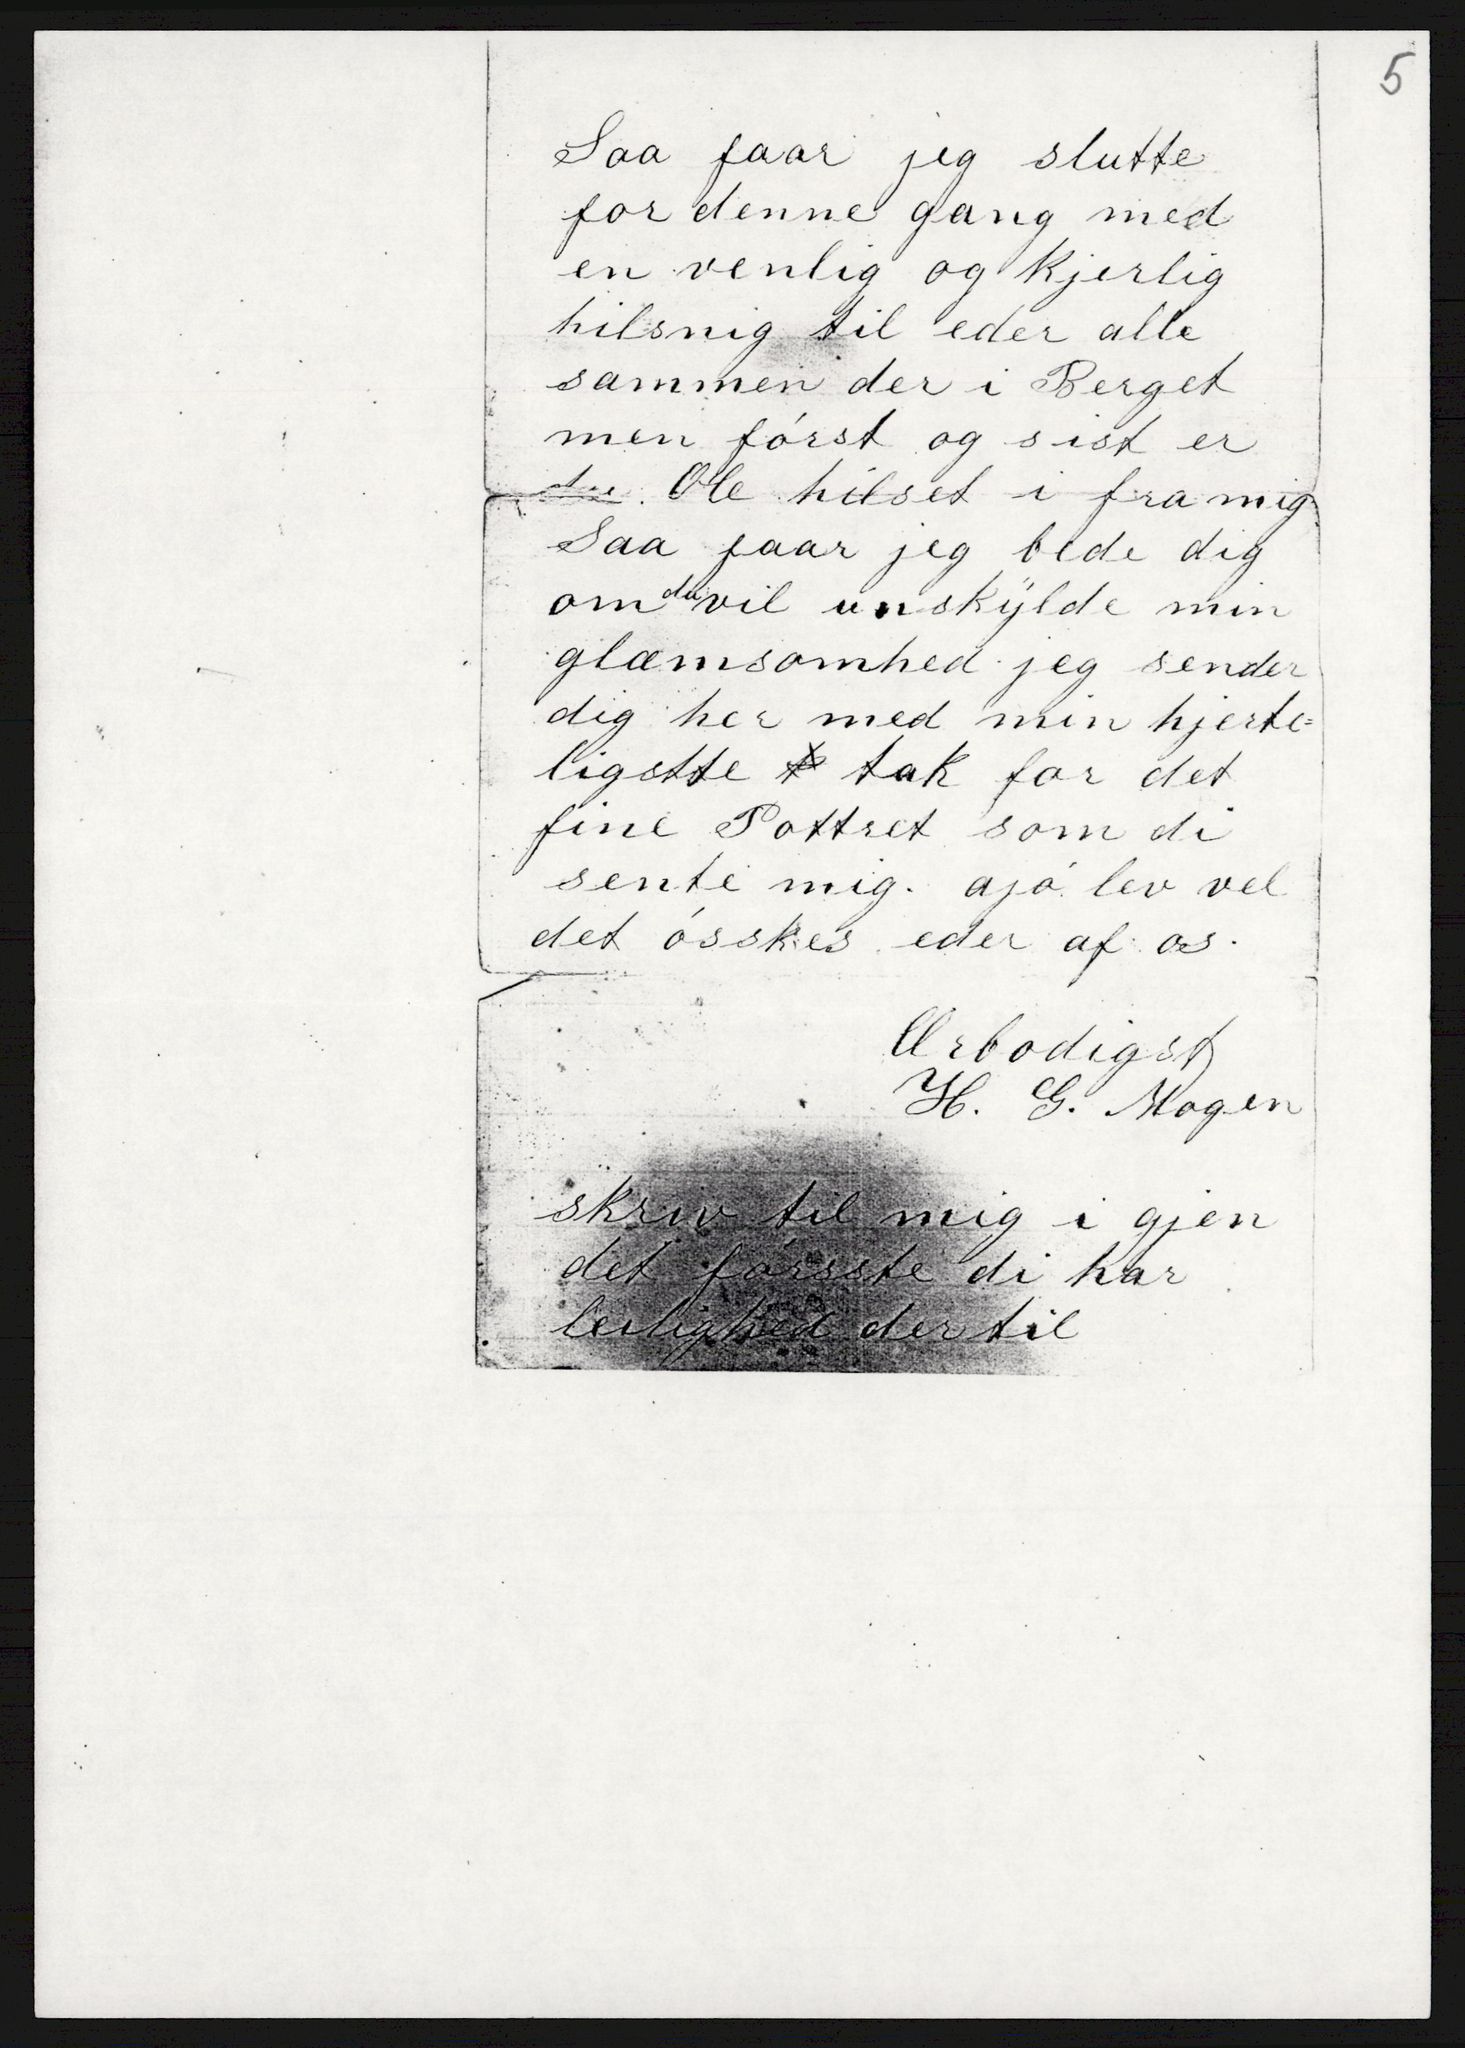 5
Saa faar jeg slutte
for denne gang med
en venlig og kjerlig
hilsnig til eder alle
sammen der i Berget
men først og sist er
du. Ole hilset i fra mig
Saa faar jeg bede dig
om du vil unskÿlde min
glæmsomhed. jeg sender
dig her med min hjerte=
ligstte tak for det
fine Pottret som di
sente mig. ajø lev vel
det øsskes eder af os.
Ærbodigst
H. G. Mogen
skriv til mig i gjen
det førsste di har
leilighed der til